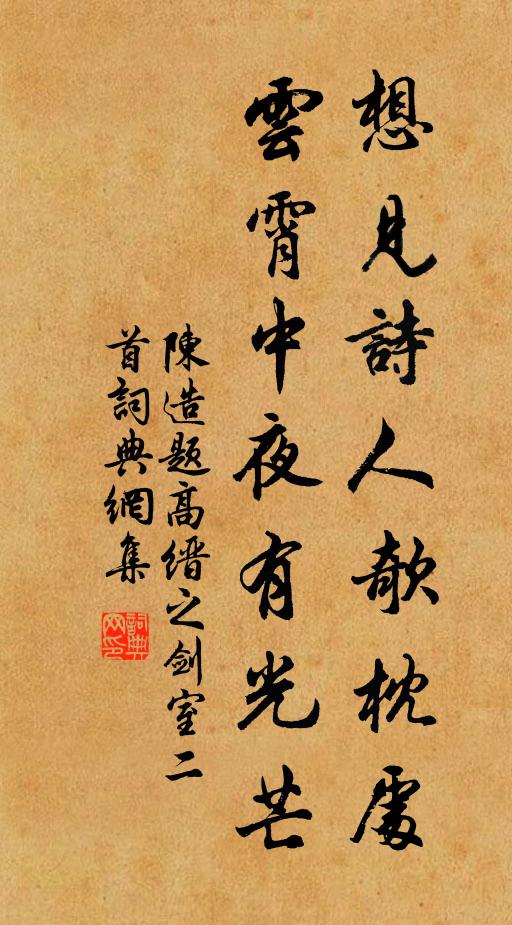 想見詩人欹枕處
雲霄中夜有光芒
陳造題高縉之劍室二
首詞典網集
詞典網印